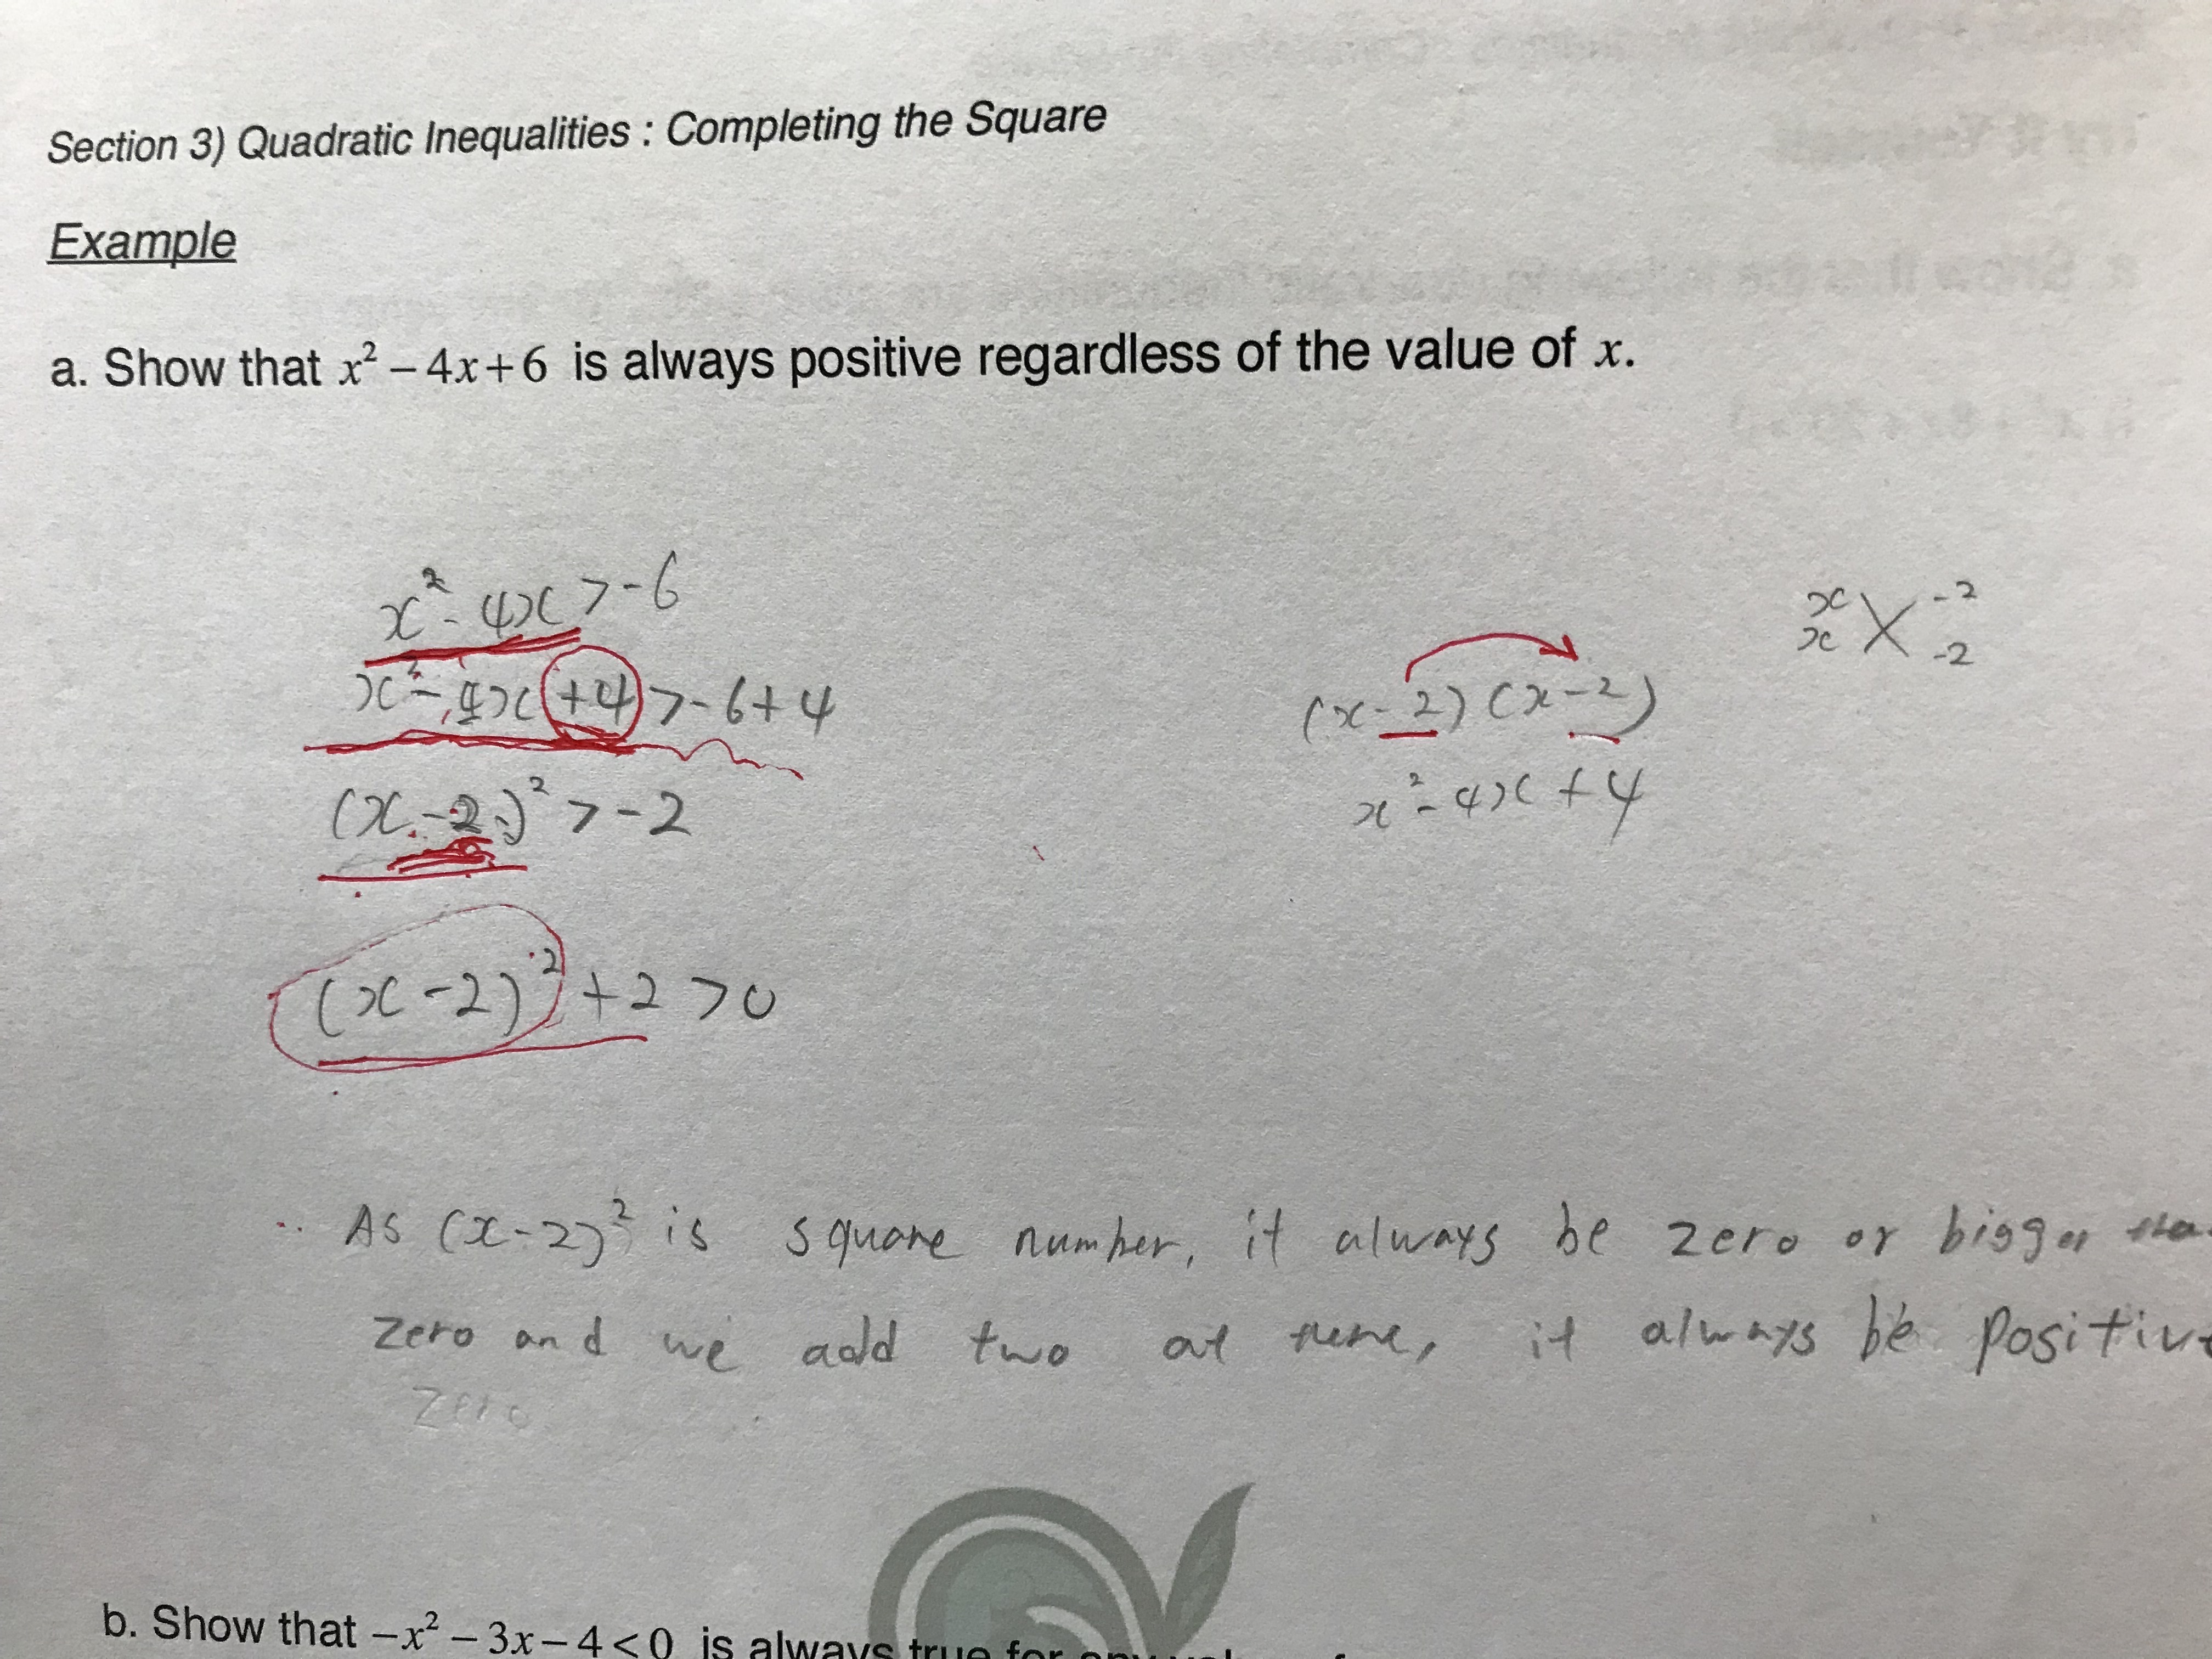 Section 3) Quadratic Inequalities : Completing the Square
Example
a. Show that x² – 4x+6 is always positive regardless of the value of x.
x² - 4x > -6
x² - 4x +4 > -6 + 4
(x - 2)² > -2
(x - 2)² + 2 > 0
x x -2 -2
(x - 2) (x - 2)
x² - 4x + 4
As (x-2)² is square number, it always be zero or bigger
zero and we add two at here, it always be positive
zero
b. Show that –x² – 3x – 4 < 0 is always true for any